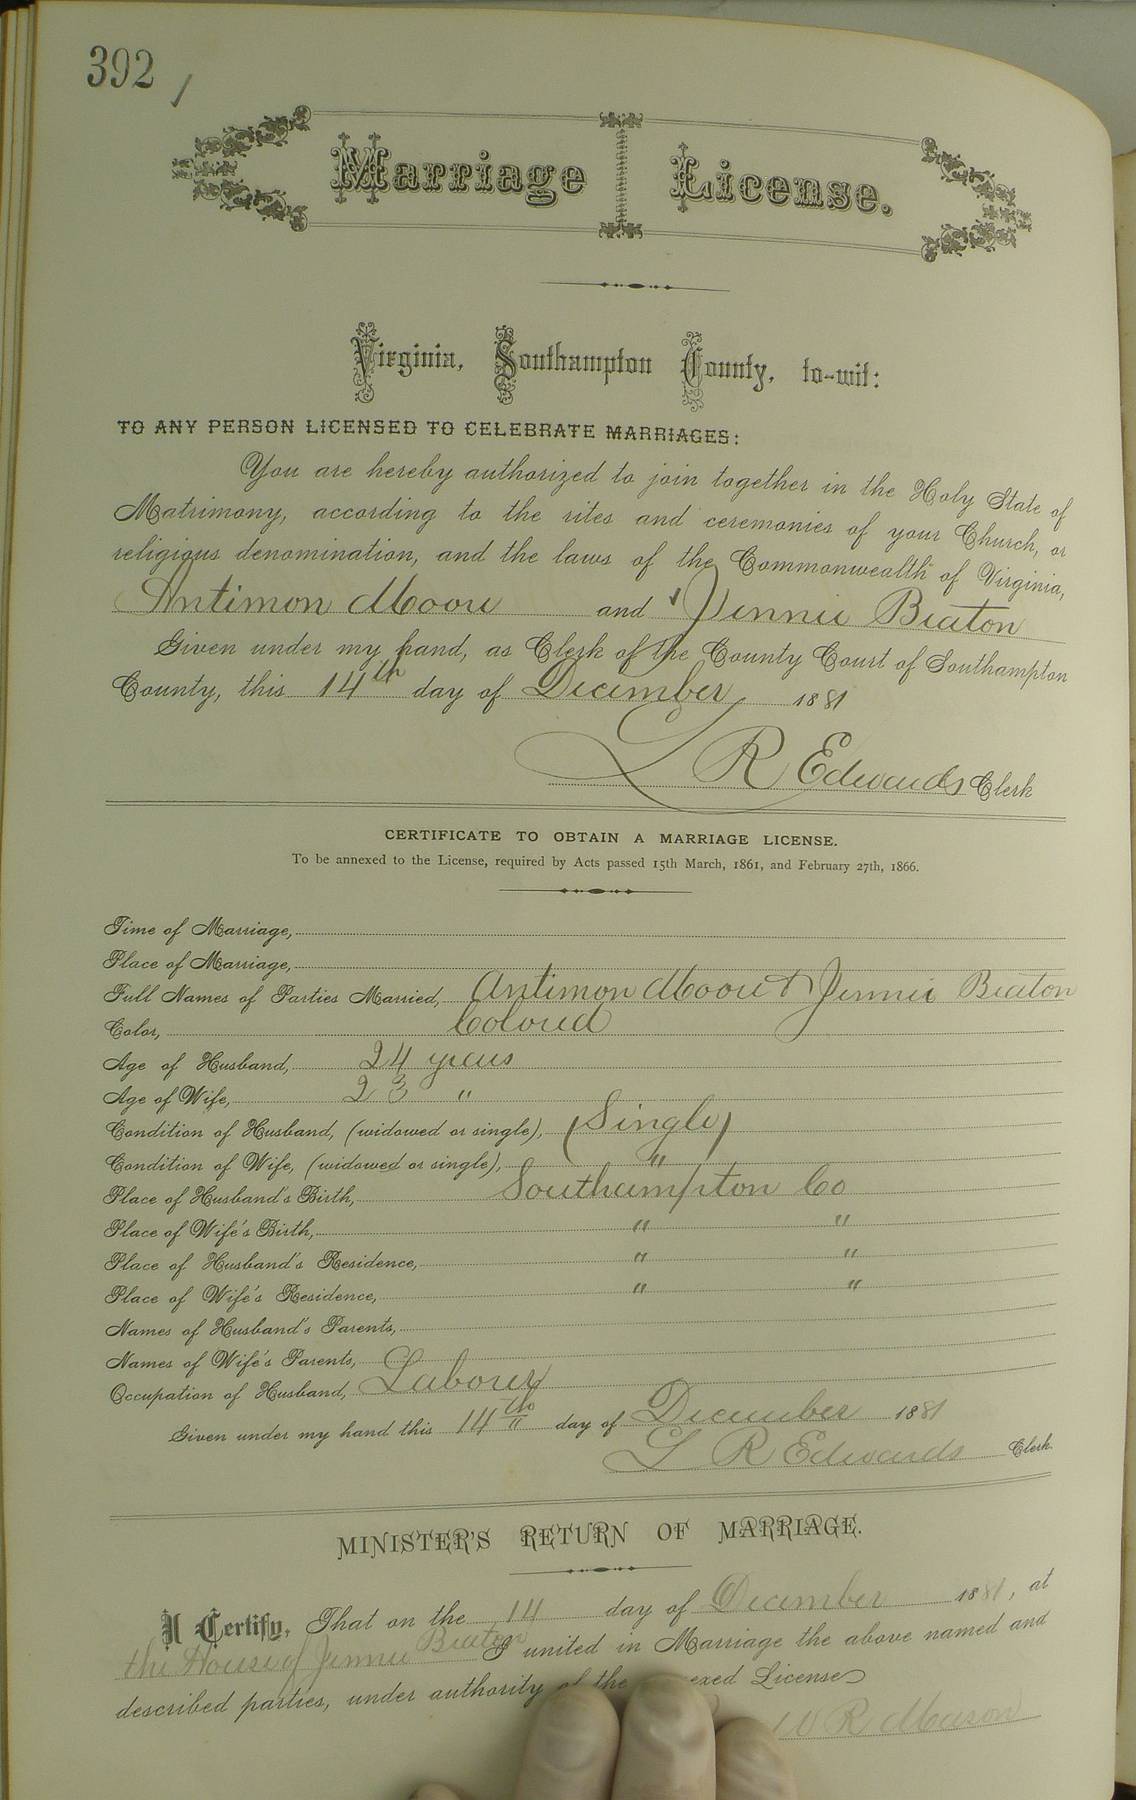 392
Marriage License.
Virginia, Southampton County, to-wit:
TO ANY PERSON LICENSED TO CELEBRATE MARRIAGES:
You are hereby authorized to join together in the Holy State of
Matrimony, according to the rites and ceremonies of your Church, or
religious denomination, and the laws of the Commonwealth of Virginia,
Antimon Moore and Jennie Beaton
Given under my hand, as Clerk of the County Court of Southampton
County, this 14th day of December 1881
L R Edwards Clerk
CERTIFICATE TO OBTAIN A MARRIAGE LICENSE.
To be annexed to the License, required by Acts passed 15th March, 1861, and February 27th, 1866.
Time of Marriage,
Place of Marriage,
Full Names of Parties Married, Antimon Moore & Jennie Beaton
Color, Colored
Age of Husband, 24 years
Age of Wife, 23 "
Condition of Husband, (widowed or single), (Single)
Condition of Wife, (widowed or single), "
Place of Husband's Birth, Southampton Co
Place of Wife's Birth, " "
Place of Husband's Residence, " "
Place of Wife's Residence, " "
Names of Husband's Parents,
Names of Wife's Parents,
Occupation of Husband, Laborer
Given under my hand this 14th day of December 1881
L R Edwards Clerk.
MINISTER'S RETURN OF MARRIAGE.
I Certify, That on the 14 day of December 1881, at
the House of Jennie Beaton I united in Marriage the above named and
described parties, under authority of the annexed License
W R Mason